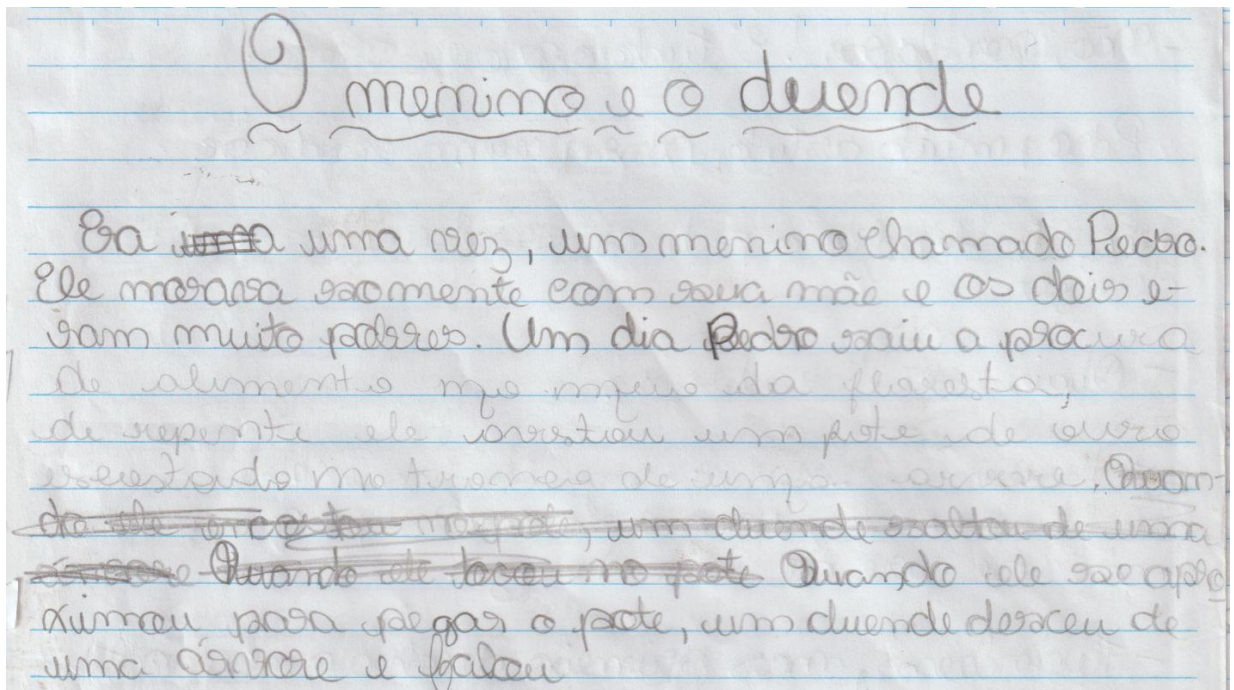 O menino e o duende
Era uma vez, um menino chamado Pedro.
Ele morava somente com sua mãe e os dois e-
ram muito pobres. Um dia Pedro saiu a procura
de alimento no meio da floresta,
de repente ele avistou um pote de ouro
encostado no tronco de uma arvore. Quan-
do ele encostou no pote, um duende saltou de uma
árvore Quando ele tocou no pote Quando ele se apro
ximou para pegar o pote, um duende desceu de
uma árvore e falou